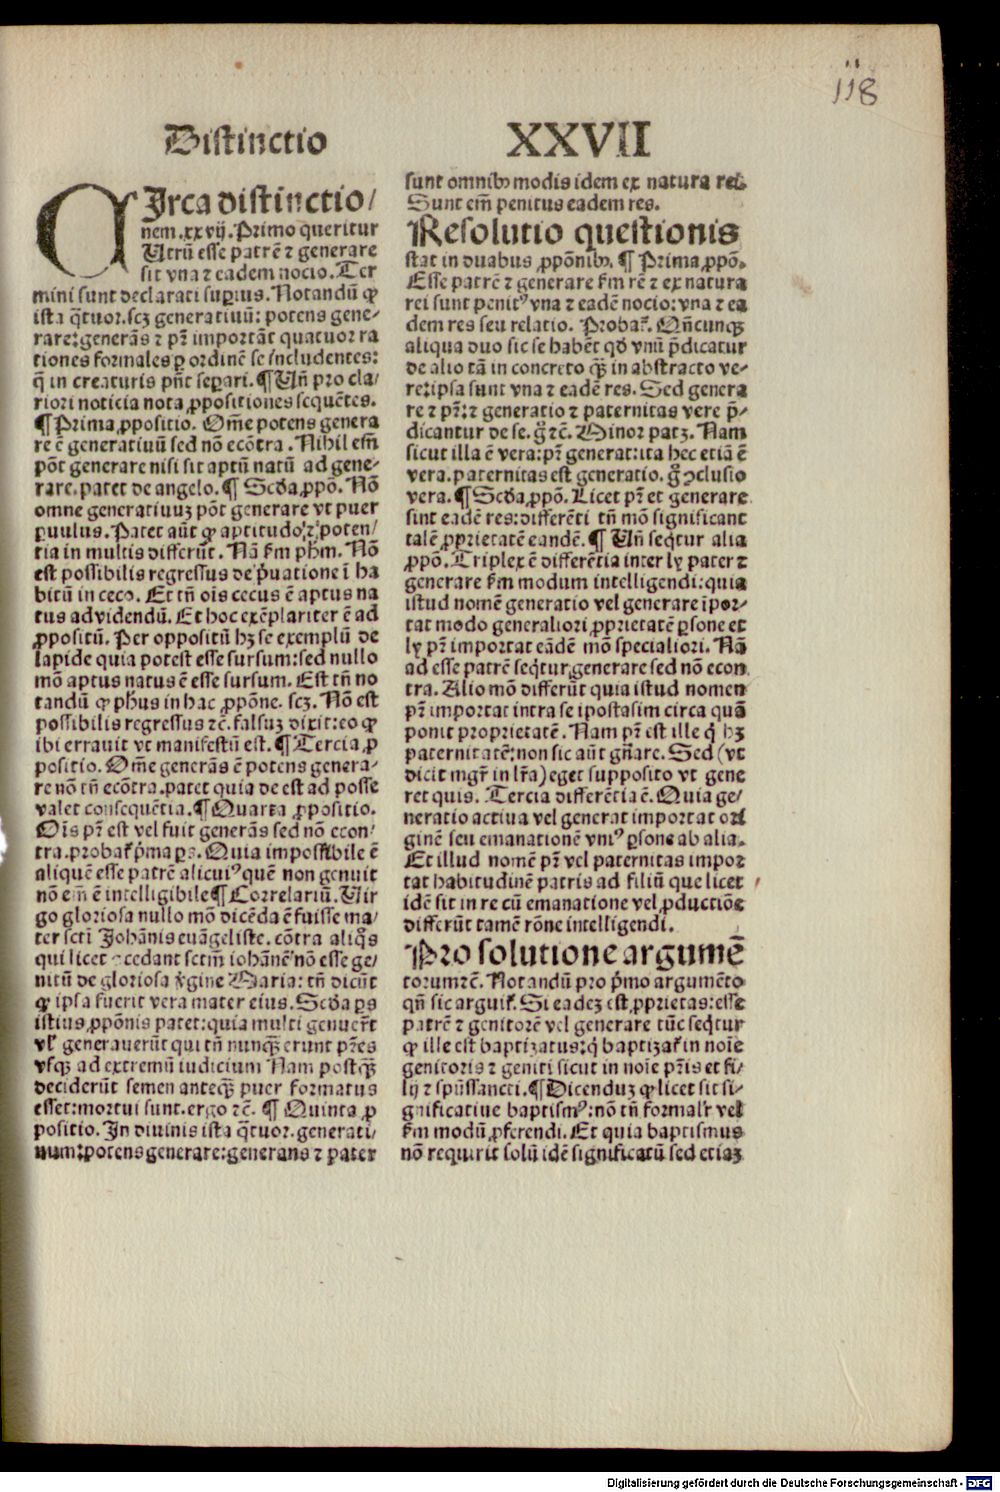 118
Distinctio XXVII
CIrca distinctio/
nem.xxvij.Primo queritur
Utrū esse patrē ⁊ generare
sit vna ⁊ eadem nocio.Ter
mini sunt declarati superius. Notandū ꝙ
ista q̄tuor.scꝫ generatiuū: potens gene-
rare:generās ⁊ pr̄ importāt quatuor ra
tiones formales ꝑ ordinē se includentes:
q̄ in creaturis pn̄t seꝑari.¶Un̄ pro cla/
riori noticia nota ꝓpositiones sequētes.
¶Prima ꝓpositio. Om̄e potens genera
re ē generatiuū sed nō ecōtra. Nihil em̄
pōt generare nisi sit aptū natū ad gene-
rare.patet de angelo.¶ Scd̄a ꝓpō. Nō
omne generatiuuꝫ pōt generare vt puer
ꝑuulus. Patet aūt ꝙ aptitudo ⁊ poten/
tia in multis differūt. Nā km̄ ph̄m. Nō
est possibilis regressus de p̄uatione ī ha
bitū in ceco. Et tn̄ oīs cecus ē aptus na
tus ad videndū. Et hoc exēplariter ē ad
ꝓpositū. Per oppositū hꝫ se exemplū de
lapide quia potest esse sursum:sed nullo
mō aptus natus ē esse sursum. Est tn̄ no
tandū ꝙ ph̄us in hac ꝓpōne. scꝫ. Nō est
possibilis regressus ⁊c̄.falsuꝫ dixit:eo ꝙ
ibi errauit vt manifestū est.¶Tercia ꝓ
positio. Om̄e generās ē potens genera-
re nō tn̄ ecōtra.patet quia de est ad posse
valet consequētia.¶Quarta ꝓpositio.
Oīs pr̄ est vel fuit generās sed nō econ/
tra.probat᷑ p̄ma ps. Quia impossibile ē
aliquē esse patrē alicui⁹ quē non genuit
nō em̄ ē intelligibile¶Correlariū.Uir
go gloriosa nullo mō dicēda ē fuisse ma/
ter scti Johānis euāgeliste. cōtra aliq̊s
qui licet ꝯcedant sctm̄ iohānē nō esse ge/
nitū de gloriosa v̓gine Maria: tn̄ dicūt
ꝙ ipsa fuerit vera mater eius. Scd̄a ps
istius ꝓpōnis patet:quia multi genuer̄t
vl̓ generauerūt qui tn̄ nunqꝫ erunt pr̄es
vsqꝫ ad extremū iudicium Nam postqꝫ
deciderūt semen anteqꝫ puer formatus
esset:mortui sunt.ergo ⁊c̄. ¶ Quinta ꝓ
positio. In diuinis ista q̄tuor.generati/
uum:potens generare:generans ⁊ pater
sunt omnibꝰ modis idem ex natura rei.
Sunt em̄ penitus eadem res.
Resolutio questionis
stat in duabus ꝓpōnibꝰ. ¶ Prima ꝓpō.
Esse patrē ⁊ generare km̄ rē ⁊ ex natura
rei sunt penit⁹ vna ⁊ eadē nocio:vna ⁊ ea
dem res seu relatio. Probat᷑. Qn̄cunqꝫ
aliqua duo sic se habēt qd̓ vnū p̄dicatur
de alio tā in concreto qꝫ in abstracto ve-
re:ipsa sunt vna ⁊ eadē res. Sed genera
re ⁊ pr̄:⁊ generatio ⁊ paternitas vere p̄-
dicantur de se. g̊ ⁊c̄. Minor patꝫ. Nam
sicut illa ē vera:pr̄ generat:ita hec etiā ē
vera.paternitas est generatio. g̊ ꝯclusio
vera. ¶Scd̄a ꝓpō. Licet pr̄ et generare
sint eadē res:differēti tn̄ mō significant
talē ꝓprietatē eandē. ¶ Un̄ seq̄tur alia
ꝓpō. Triplex ē differētia inter ly pater ⁊
generare km̄ modum intelligendi:quia
istud nomē generatio vel generare īpor-
tat modo generaliori ꝓprietatē ꝑsone et
ly pr̄ importat eādē mō specialiori. Nā
ad esse patrē seq̄tur generare sed nō econ
tra. Alio mō differūt quia istud nomen
pr̄ importat intra se ipostasim circa quā
ponit proprietatē. Nam pr̄ est ille q̇ hꝫ
paternitatē:non sic aūt gn̄are. Sed (vt
dicit mgr̄ in lr̄a) eget supposito vt gene
ret quis. Tercia differētia ē. Quia ge/
neratio actiua vel generat importat ori
ginē seu emanationē vni⁹ ꝑsone ab alia.
Et illud nomē pr̄ vel paternitas impor
tat habitudinē patris ad filiū que licet
idē sit in re cū emanatione vel ꝓductiōe
differūt tamē rōne intelligendi.
Pro solutione argumē
torum⁊c̄. Notandū pro p̄mo argumēto
qn̄ sic arguit᷑. Si eadeꝫ est ꝓprietas:esse
patrē ⁊ genitorē vel generare tūc seq̄tur
ꝙ ille est baptizatus:q̇ baptizat᷑ in noīe
genitoris ⁊ geniti sicut in noīe pr̄is et fi/
lij ⁊ spūssancti.¶Dicenduꝫ ꝙ licet sit si-
gnificatiue baptism⁹:nō tn̄ formalr̓ vel
km̄ modū ꝓferendi. Et quia baptismus
nō requirit solū idē significatū sed etiaꝫ
Digitalisierung gefördert durch die Deutsche Forschungsgemeinschaft - DFG